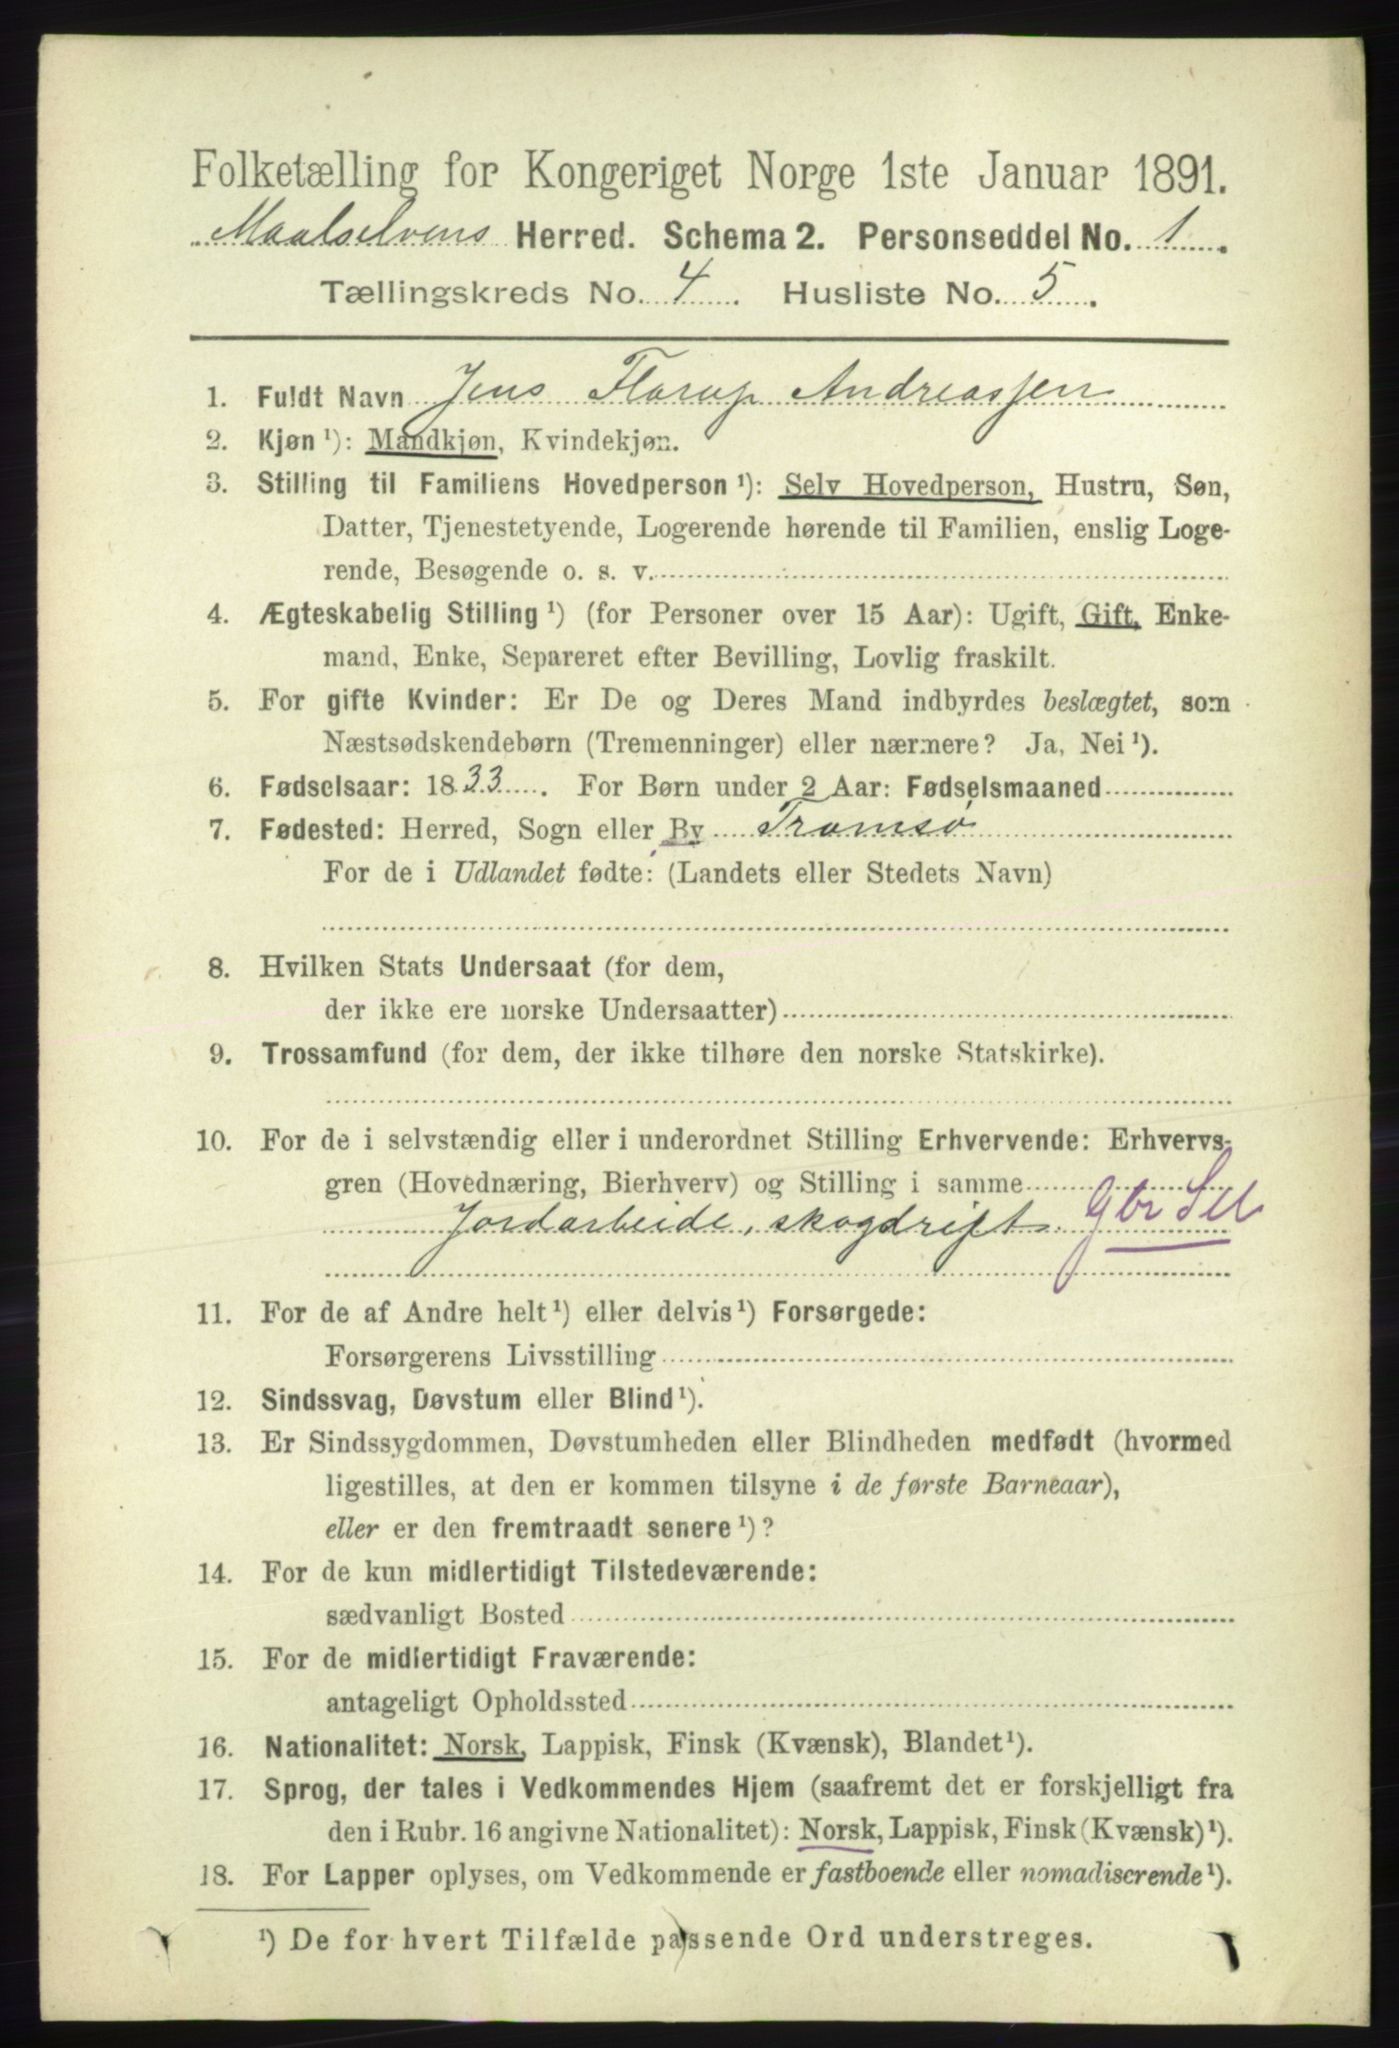 Folketælling for Kongeriget Norge 1ste Januar 1891.
Maalselvens Herred. Schema 2. Personseddel No. 1.
Tællingskreds No. 4. Husliste No. 5.
1. Fuldt Navn Jens Florup Andreassen
2. Kjøn ¹): Mandkjøn, Kvindekjøn.
3. Stilling til Familiens Hovedperson ¹): Selv Hovedperson, Hustru, Søn,
Datter, Tjenestetyende, Logerende hørende til Familien, enslig Loge-
rende, Besøgende o. s. v.
4. Ægteskabelig Stilling ¹) (for Personer over 15 Aar): Ugift, Gift, Enke-
mand, Enke, Separeret efter Bevilling, Lovlig fraskilt.
5. For gifte Kvinder: Er De og Deres Mand indbyrdes beslægtet, som
Næstsødskendebørn (Tremenninger) eller nærmere? Ja, Nei ¹).
6. Fødselsaar: 1833. For Børn under 2 Aar: Fødselsmaaned
7. Fødested: Herred, Sogn eller By Tromsø
For de i Udlandet fødte: (Landets eller Stedets Navn)
8. Hvilken Stats Undersaat (for dem,
der ikke ere norske Undersaatter)
9. Trossamfund (for dem, der ikke tilhøre den norske Statskirke).
10. For de i selvstændig eller i underordnet Stilling Erhvervende: Erhvervs-
gren (Hovednæring, Bierhverv) og Stilling i samme
Jordarbeide, skogdrift. Gbr Sel
11. For de af Andre helt ¹) eller delvis ¹) Forsørgede:
Forsørgerens Livsstilling
12. Sindssvag, Døvstum eller Blind ¹).
13. Er Sindssygdommen, Døvstumheden eller Blindheden medfødt (hvormed
ligestilles, at den er kommen tilsyne i de første Barneaar),
eller er den fremtraadt senere ¹)?
14. For de kun midlertidigt Tilstedeværende:
sædvanligt Bosted
15. For de midlertidigt Fraværende:
antageligt Opholdssted
16. Nationalitet: Norsk, Lappisk, Finsk (Kvænsk), Blandet ¹).
17. Sprog, der tales i Vedkommendes Hjem (saafremt det er forskjelligt fra
den i Rubr. 16 angivne Nationalitet): Norsk, Lappisk, Finsk (Kvænsk) ¹).
18. For Lapper oplyses, om Vedkommende er fastboende eller nomadiserende ¹).
¹) De for hvert Tilfælde passende Ord understreges.